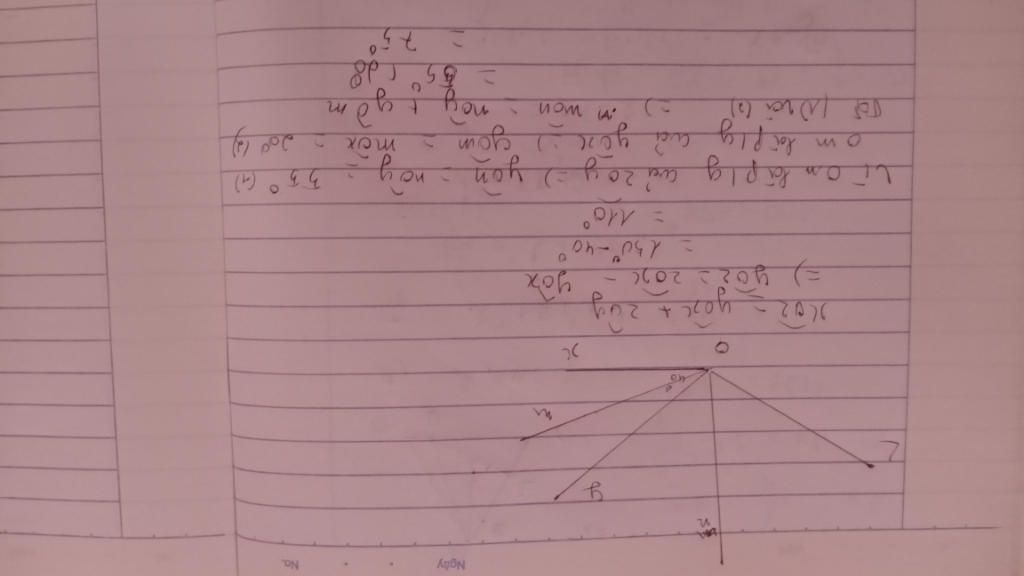 Ngày No.
n
y
z
m
40°
O x
xOz = yOx + zOy
=) yOz = zOx - yOx
= 150° - 40°
= 110°
Vì On là p/g của zOy =) yOn = nOy = 55° (1)
Om là p/g của yOx =) yOm = mOx = 20° (2)
Từ (1) và (2) =) mOn = nOy + yOm
= 75°